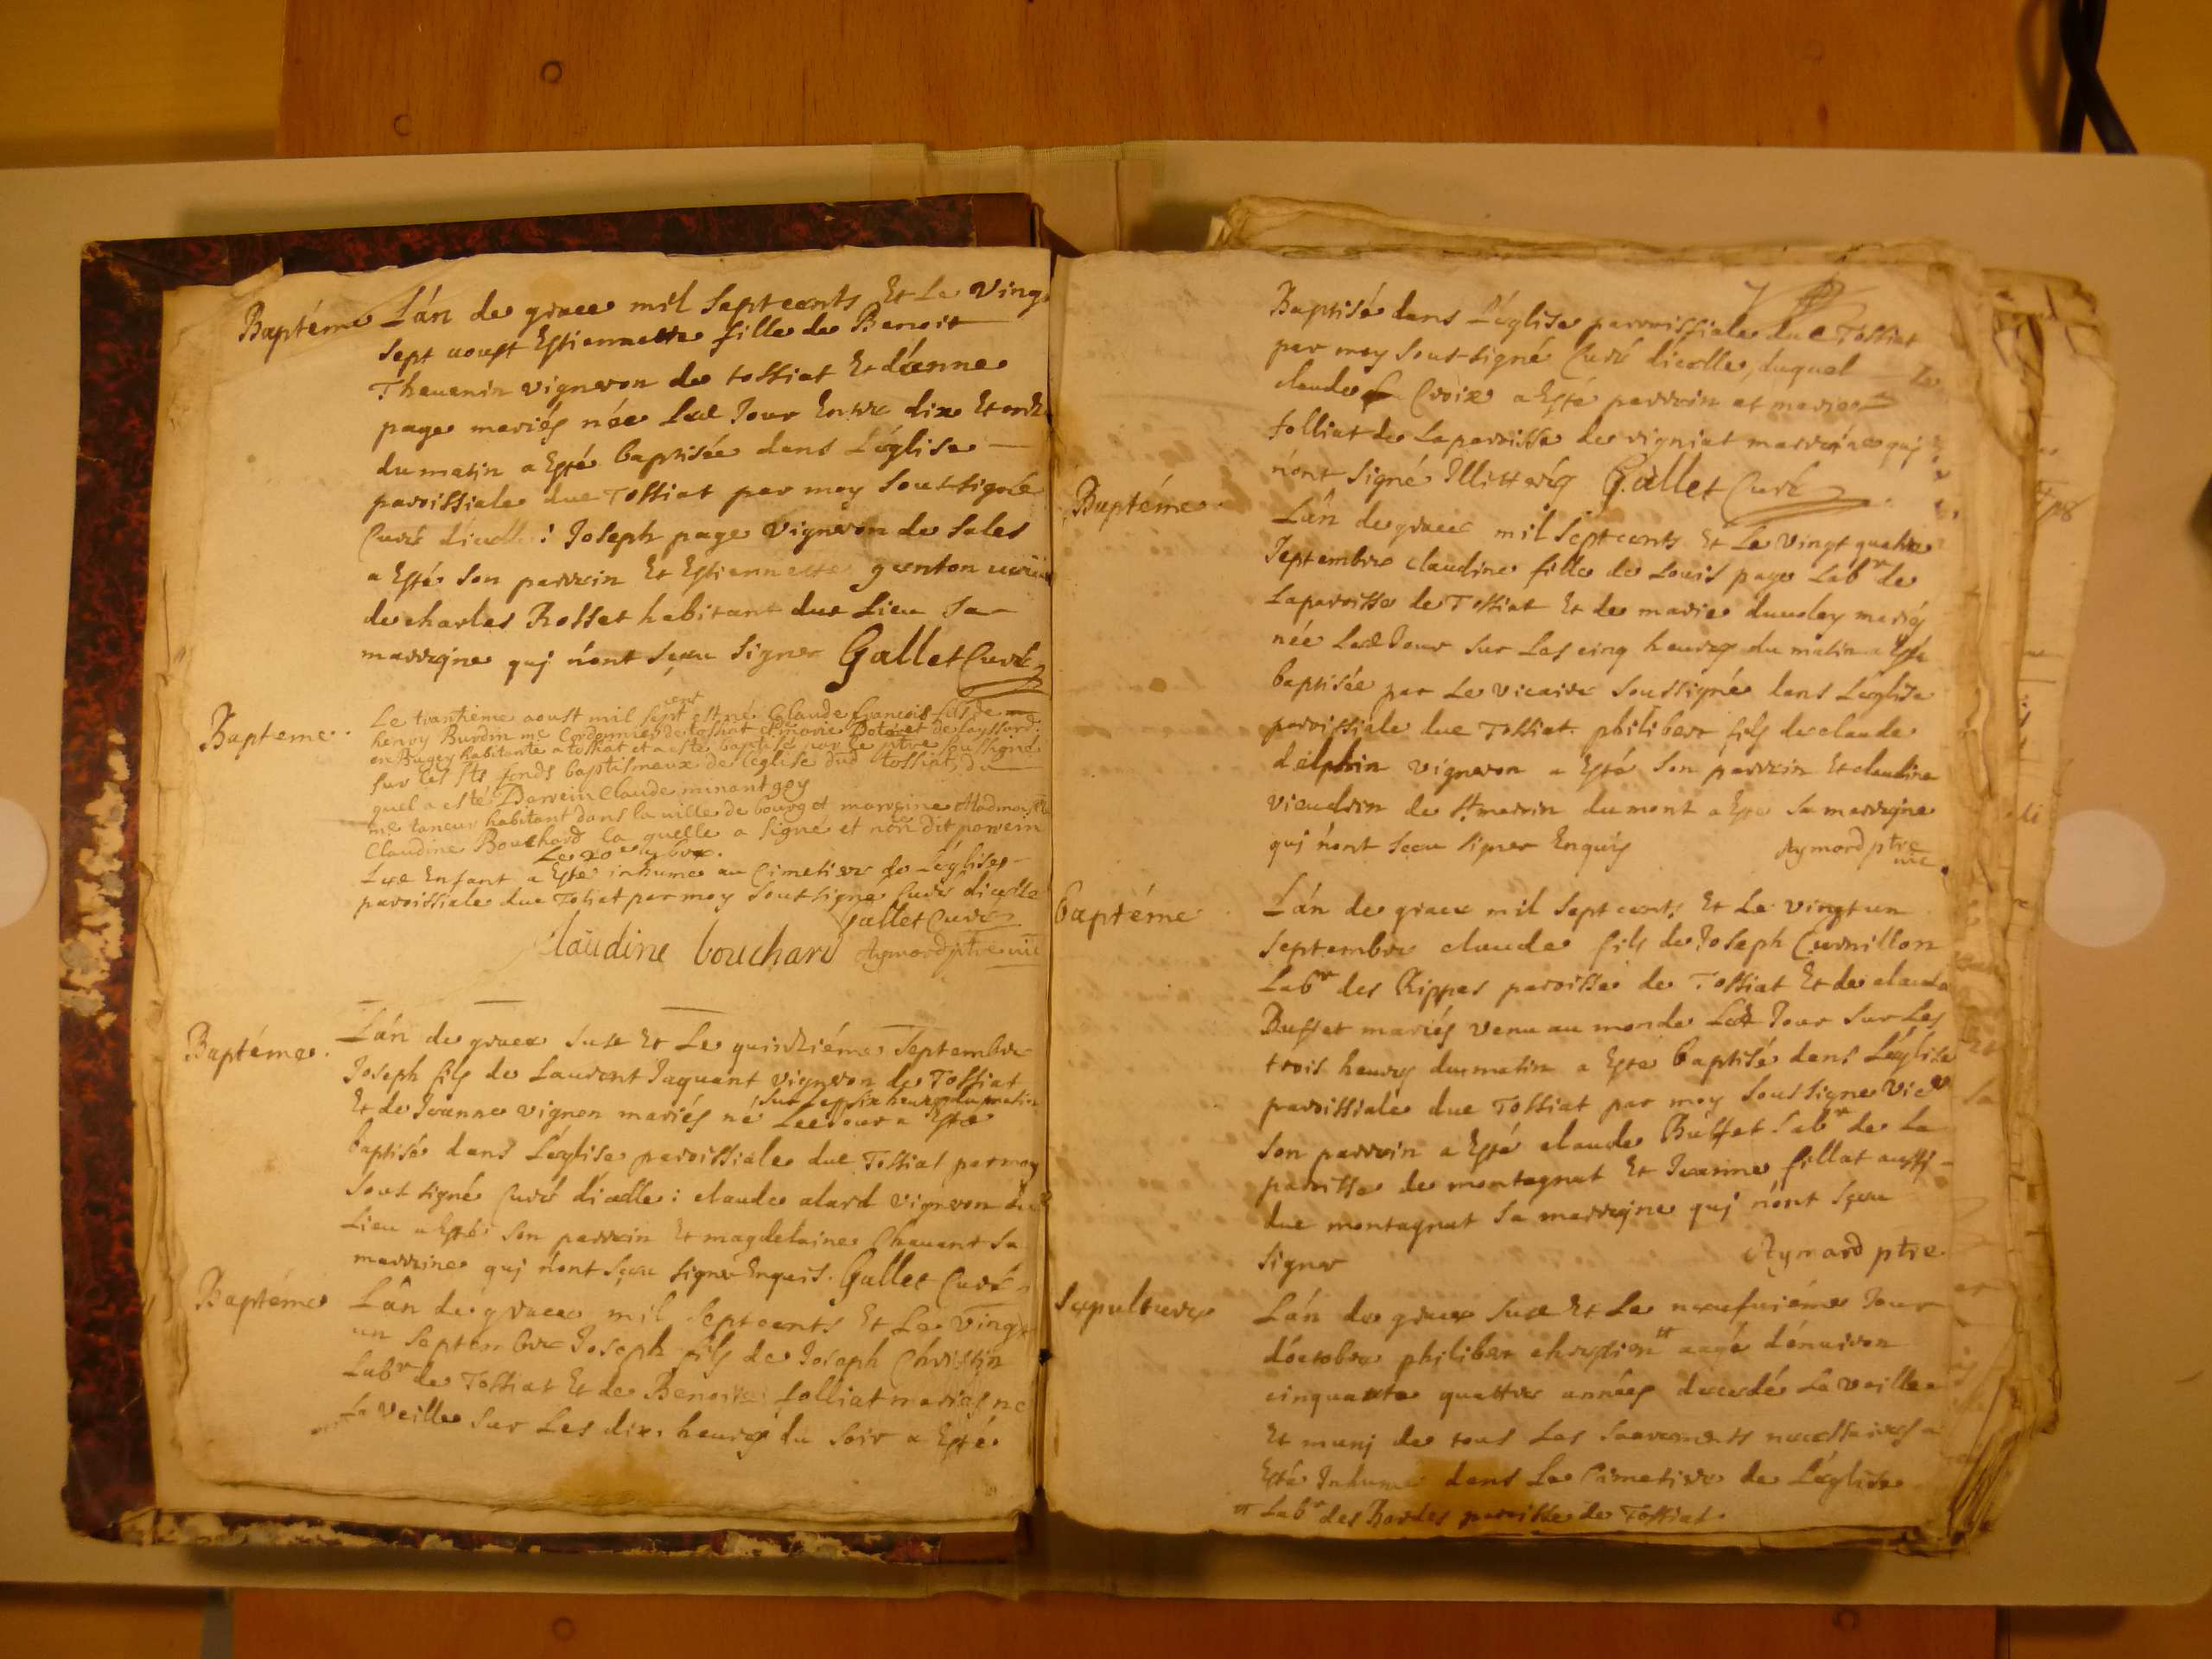 Baptéme
L'án de grace mil Septcents Et Le Vingt
Sept aoust Estiennette fille de Benoit
Thevenin vigneron de tossiat Et d'anne
page mariés née Led Jour Entre dix Et onze
du matin a Esté baptisée dans L'église
paroissiale dud Tossiat par moy Soussigné
Curé d'icelle : Joseph page Vigneron de Sales
a Esté Son parrain Et Estiennette
de charles Rosset habitant dud Lieu Sa
marreyne quj n'ont Sçeu Signer Gallet Curé
Bapteme
Le trantieme aoust mil sept cent est né Claude francois fils de
henry Burdin me Cordonnier de tossiat et de marie
en Bugey habitante a tossiat et a esté baptisé par le ptre soussigné
sur les sts fonds baptismeaux de l'eglise dud tossiat, du
quel a esté Parrein Claude minantgoy
me taneur habitant dans la uille de bourg et marreine
Claudine Bouchard la quelle a signé et non le dit parrein
Led Enfant a Esté inhumé au Cimetiere de L'église
paroissiale dud Tossiat par moy Soussigné Curé d'icelle
Gallet Curé
Claudine bouchard Aymard ptre vic
Baptéme
L'án de grace Susd Et Le quinziéme Septembre
Joseph fils de Laurent Jaquant vigneron de Tossiat
Sur Les Six heures du matin
Et de Jeanne vignon mariés né Led Jour a Esté
baptisé dans L'église paroissiale dud Tossiat par moy
Soussigné Curé d'icelle : claude alard vigneron dud
Lieu a Esté Son parrein Et magdelaine Chanant Sa
marreine quj n'ont Sçeu Signé Enquis. Gallet Curé
Baptéme
L'ân de grace mil Septcents Et Le Vingt
un Septembre Joseph fils de Joseph Christin
Labr de Tossiat Et de Benoite folliat mariés né
La veille Sur Les dix heures du Soir a Esté
Baptisé dans L'église parroissiale dud Tossiat
par moy Sous-signé Curé d'icelle, duquel
claude La Croix a Esté parrain et marie
folliat de La parroisse de rigniat marreine quj
n'ont Signé Gallet Curé
Baptéme
L'ân de grace mil Septcents Et Le Vingt quatre
Septembre claudine fille de Louis page Labr de
La paroisse de Tossiat Et de marie mariés
née Led Jour Sur Les cinq heures du matin a Esté
baptisée par Le vicaire Soussigné dans L'église
paroissiale dud Tossiat. philibert fils de claude
dalphin vigneron a Esté Son parrein Et claudine
vieudrin de St martin du mont a Esté Sa marreyne
quj n'ont Sceu Signer Enquis Aymard ptre
vic
Baptéme
L'án de grace mil Sept cents Et Le vingt un
Septembre claude fils de Joseph Curnillon
Labr des Rippes paroisse de Tossiat Et de clauda
Buffet mariés venu au monde Led Jour Sur Les
trois heures du matin a Esté baptisé dans L'église
paroissiale dud Tossiat par moy Soussigné Vicr
Son parrein a Esté claude Buffet Labr de La
paroisse de montagnat Et Jeanne fillat aussi
dud montagnat Sa marreyne quj n'ont Sçeu
Signer Aymard ptre
Sepulture
L'án de grace Susd Et Le neufuiéme Jour
d'octobre philibert chrystin aagé d'enuiron
cinquante quattre années decedé La veille
Et munj de tous Les Sacrements necessaires a
Esté Inhumé dans Le Cimetiere de L'église
Labr des Bordes paroisse de Tossiat.